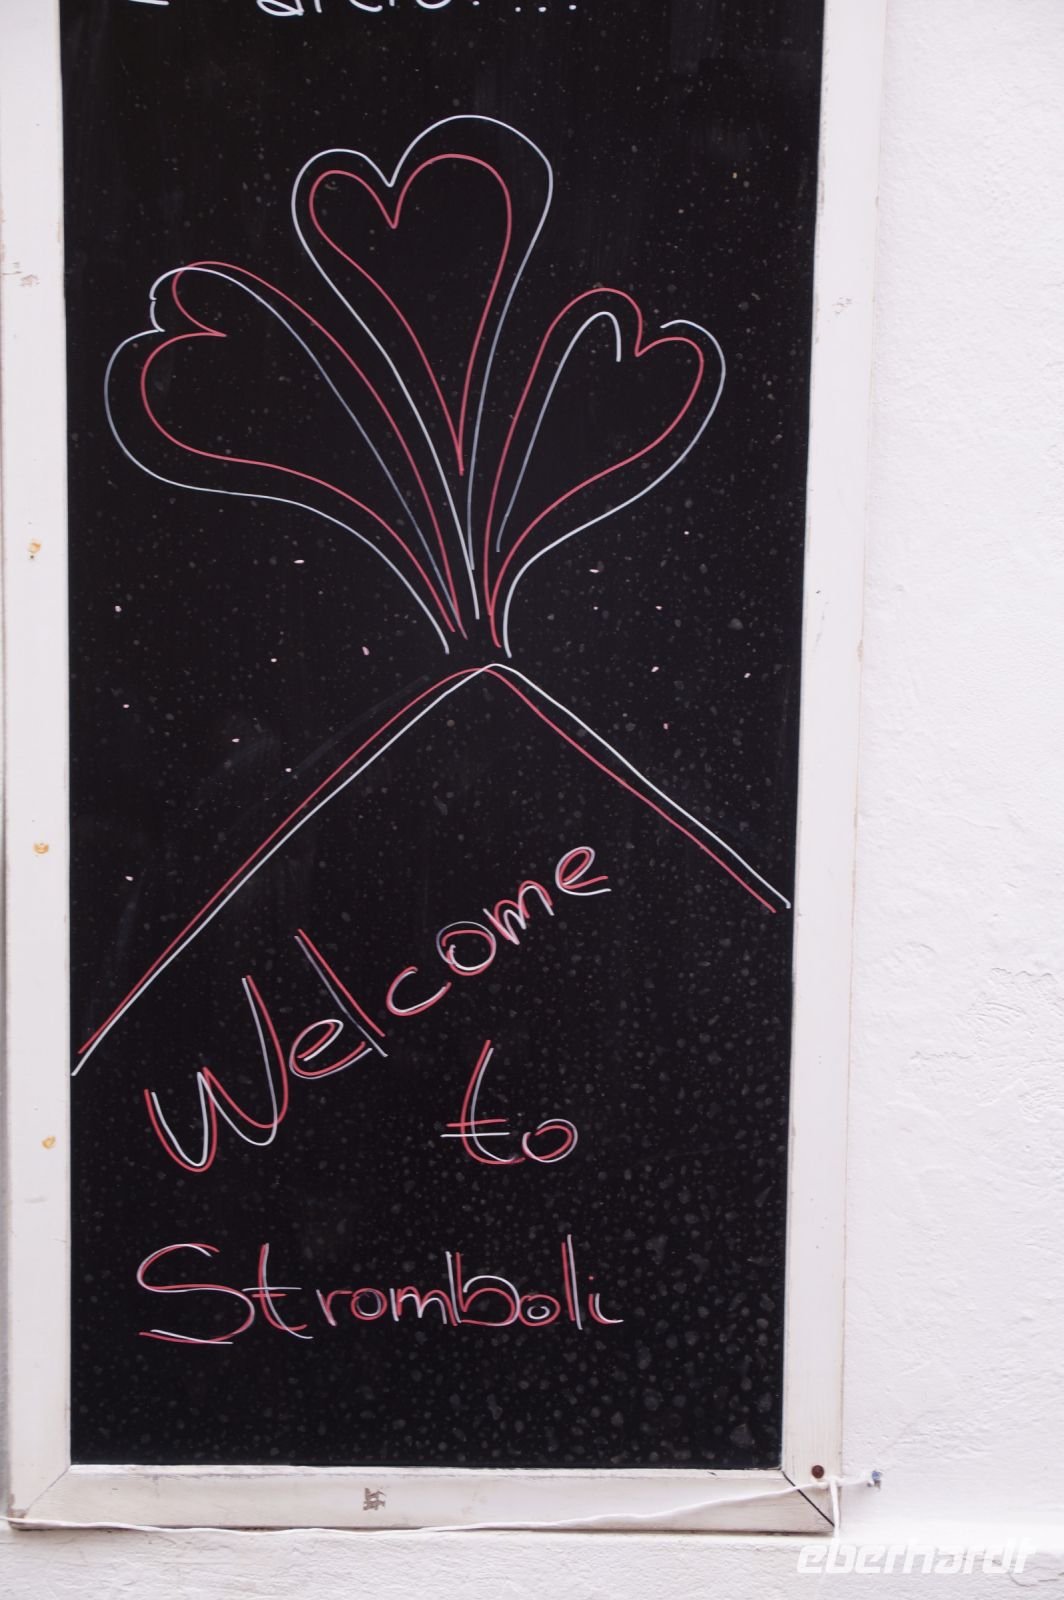 Welcome
to
Stromboli
eberhardt